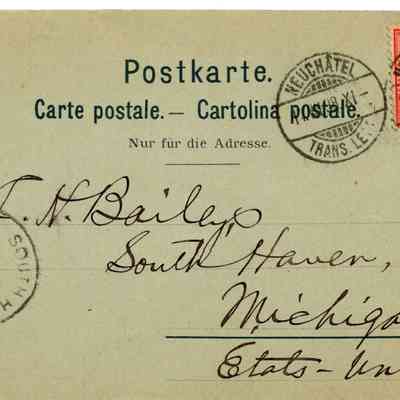 Postkarte.
Carte postale. — Cartolina postale.
Nur für die Adresse.
NEUCHÂTEL
TRANS. LETT
H. Baileys
South Haven,
Michiga
Etats-Un
SOUTH H